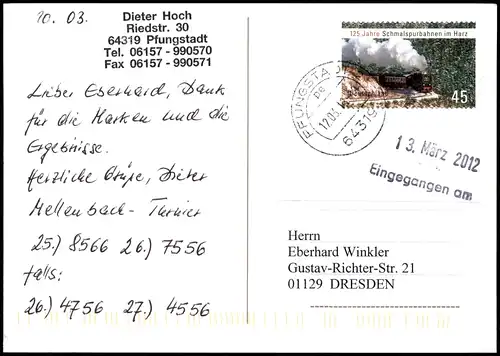 10. 03.
Dieter Hoch
Riedstr. 30
64319 Pfungstadt
Tel. 06157 - 990570
Fax 06157 - 990571
Lieber Eberhard, Dank
für die Marken und die
Ergebnisse.
Herzliche Grüße, Dieter
Mellenbach - Turnier
25.) 8566 26.) 7556
falls:
26.) 4756 27.) 4556
125 Jahre Schmalspurbahnen im Harz
45
PFUNGSTA
12.03.
64319
13. März 2012
Eingegangen am
Herrn
Eberhard Winkler
Gustav-Richter-Str. 21
01129 DRESDEN